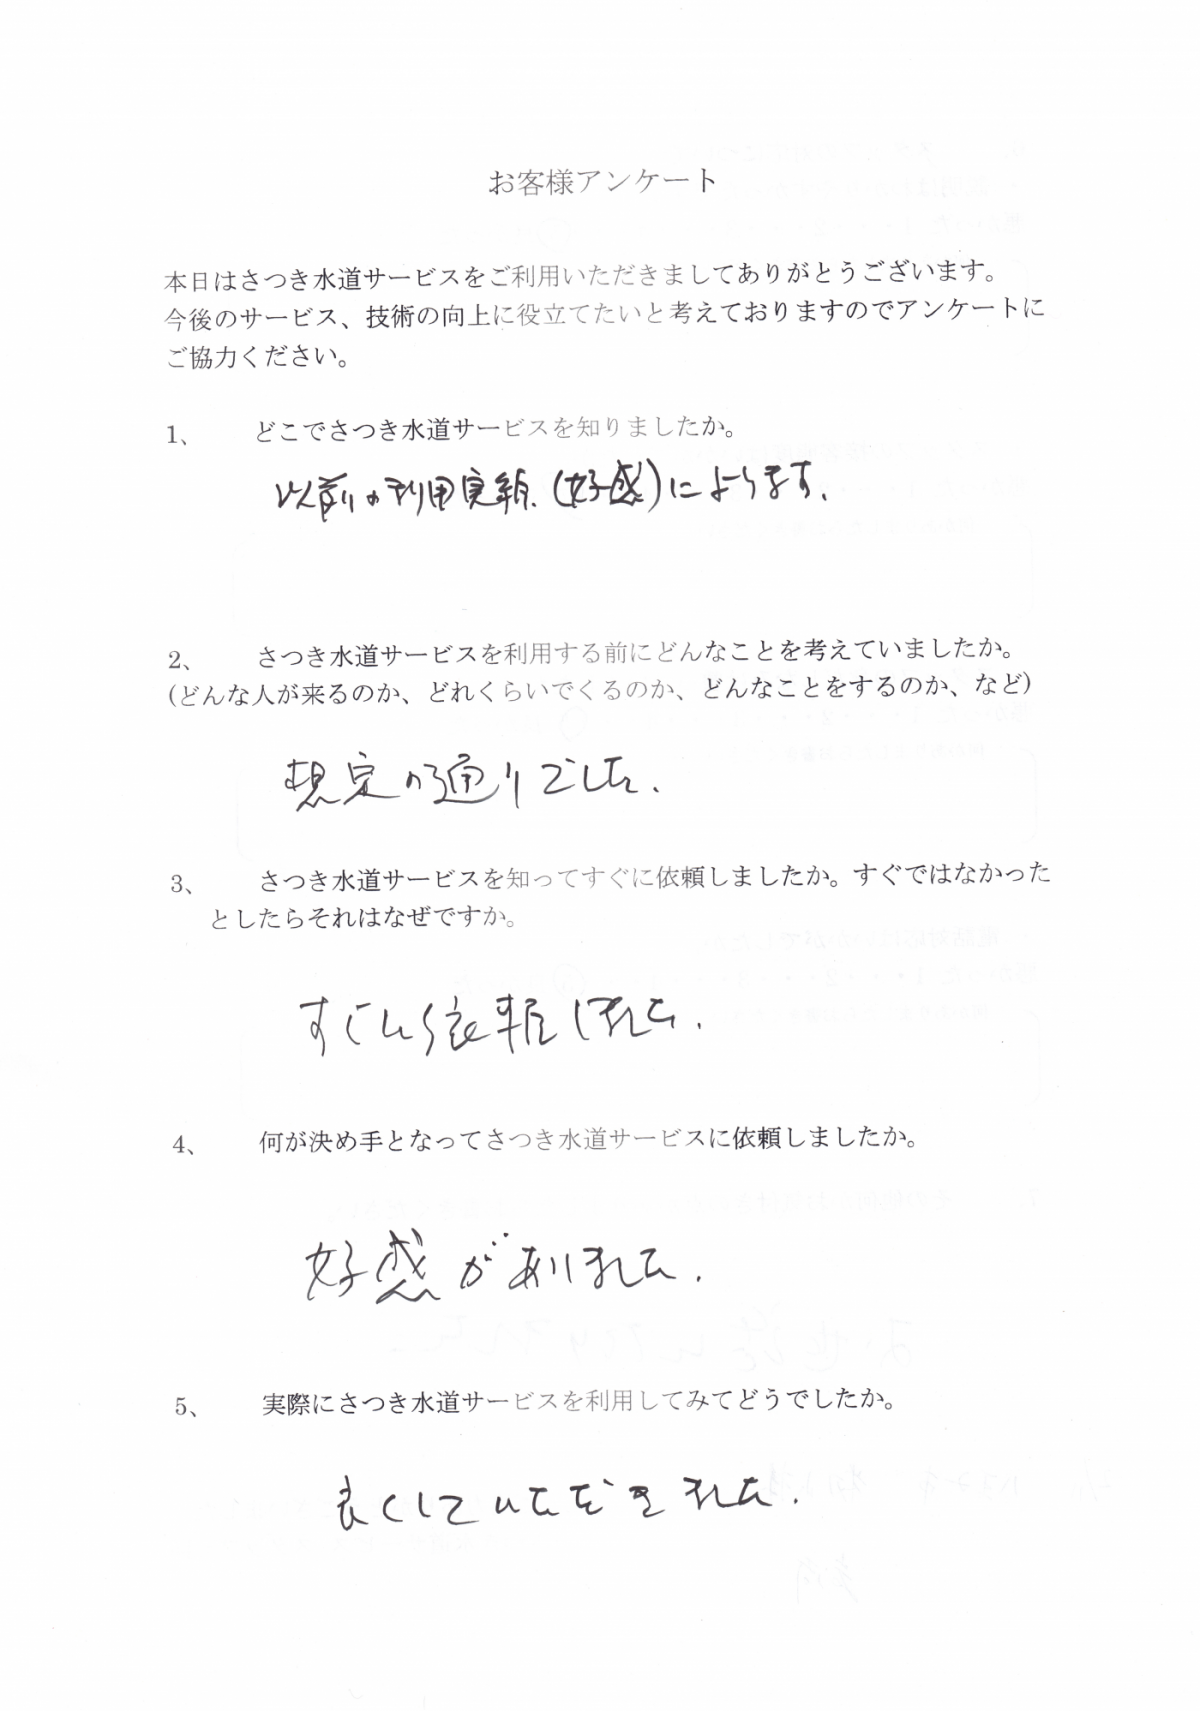 お客様アンケート
本日はさつき水道サービスをご利用いただきましてありがとうございます。
今後のサービス、技術の向上に役立てたいと考えておりますのでアンケートに
ご協力ください。
1、 どこでさつき水道サービスを知りましたか。
以前の利用実績(好感)によります.
2、 さつき水道サービスを利用する前にどんなことを考えていましたか。
(どんな人が来るのか、どれくらいでくるのか、どんなことをするのか、など)
想定の通りでした.
3、 さつき水道サービスを知ってすぐに依頼しましたか。すぐではなかった
としたらそれはなぜですか。
すぐに依頼しました.
4、 何が決め手となってさつき水道サービスに依頼しましたか。
好感がありました.
5、 実際にさつき水道サービスを利用してみてどうでしたか。
良くしていただきました.